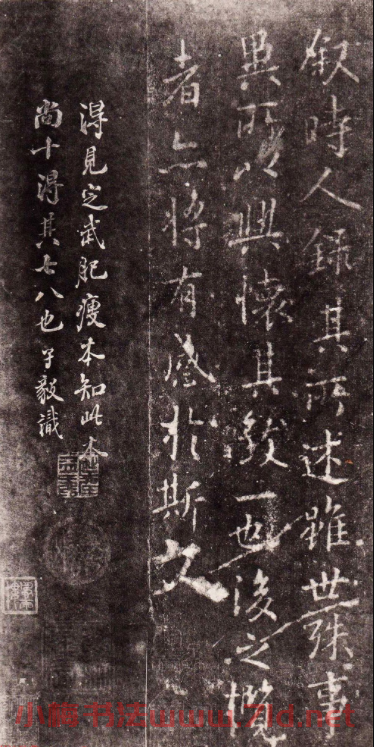 叙時人録其所述雖世殊事
異所以興懷其致一也後之攬
者亦將有感於斯文
淂見定武肥瘦本知此本
尚十淂其七八也 子毅識
书法www.7ld.net